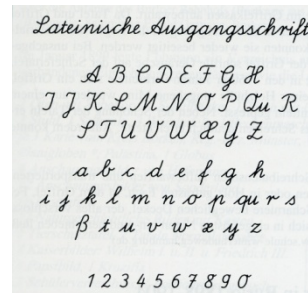 Lateinische Ausgangsschrift
A B C D E F G H
I J K L M N O P Qu R
S T U V W X Y Z
a b c d e f g h
i j k l m n o p qu r s
ß t u v w x y z
1 2 3 4 5 6 7 8 9 0